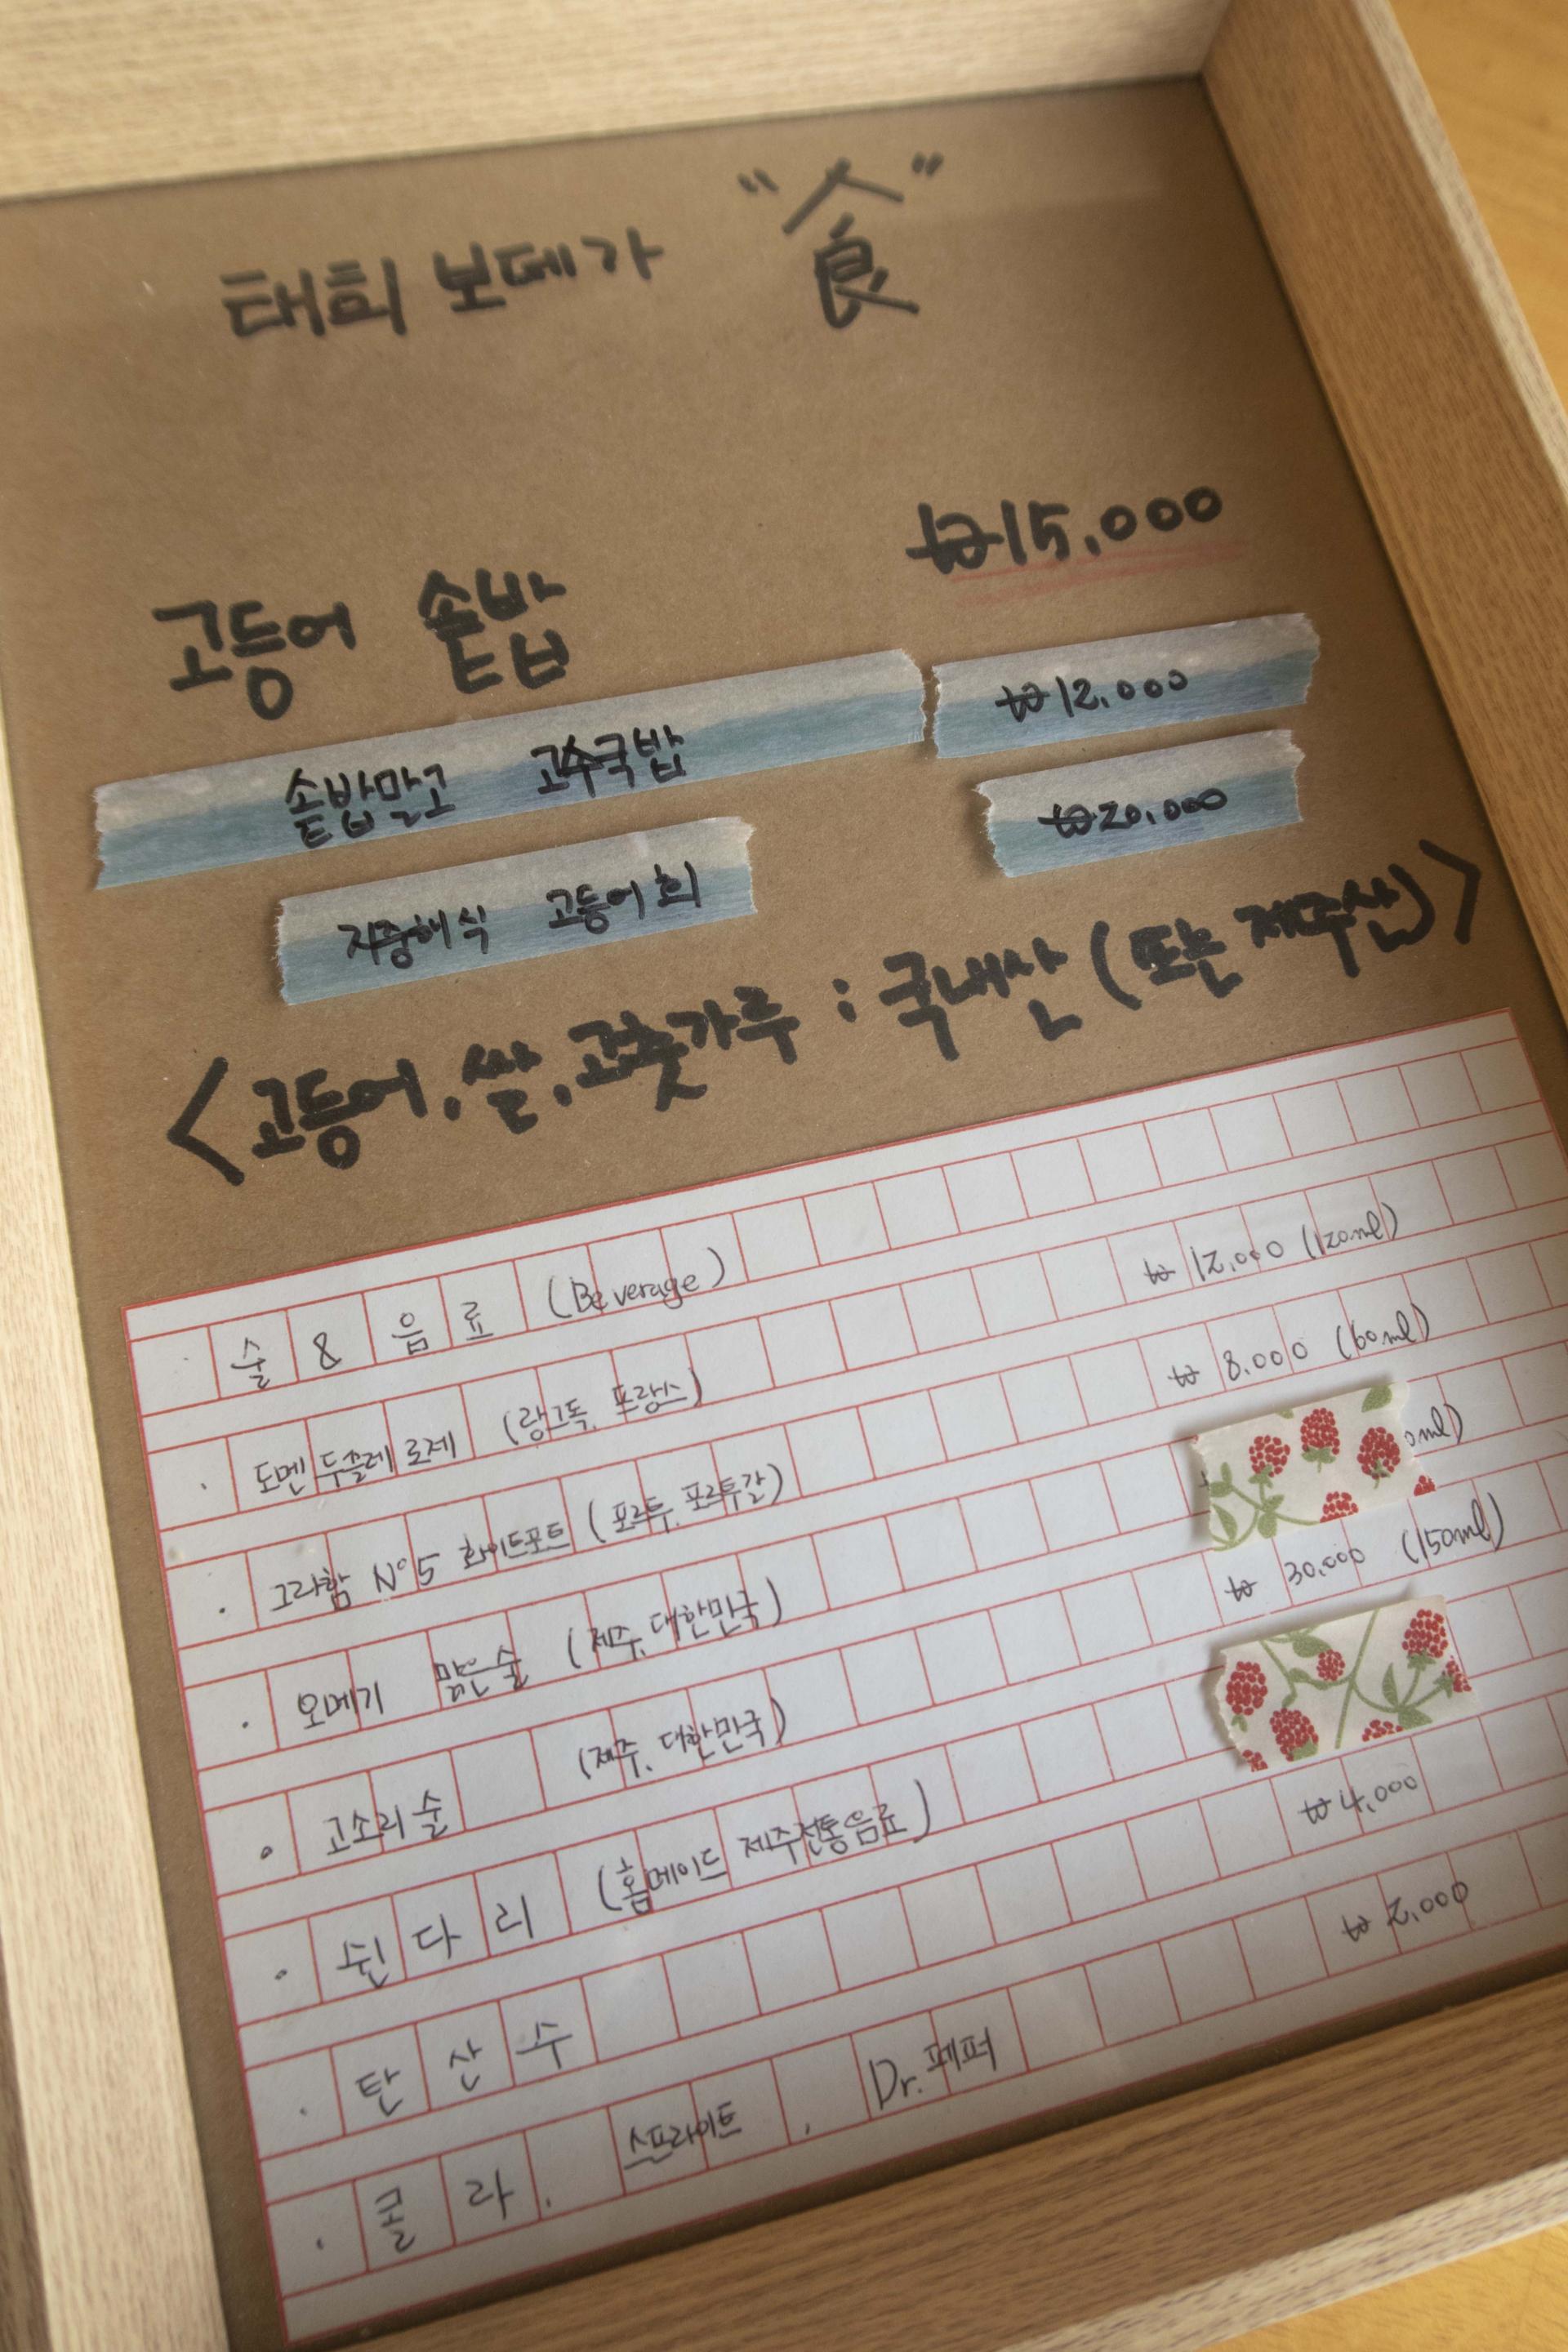 태희 보데가 "食"
고등어 솥밥 ₩15,000
솥밥말고 고수국밥 ₩12,000
지중해식 고등어회 ₩20,000
<고등어, 쌀, 고춧가루 : 국내산 (또는 제주산)>
술 & 음료 (Beverage)
· 도멘 두줄레 로제 (랑그독, 프랑스) ₩ 12,000 (120ml)
· 그라함 Nº5 화이트포트 (포르투, 포르투갈) ₩ 8,000 (60ml)
· 오메기 맑은술 (제주, 대한민국) 0ml)
· 고소리술 (제주, 대한민국) ₩ 30,000 (150ml)
· 쉰다리 (홈메이드 제주전통음료)
· 탄산수 ₩4,000
· 콜라, 스프라이트, Dr.페퍼 ₩ 2,000